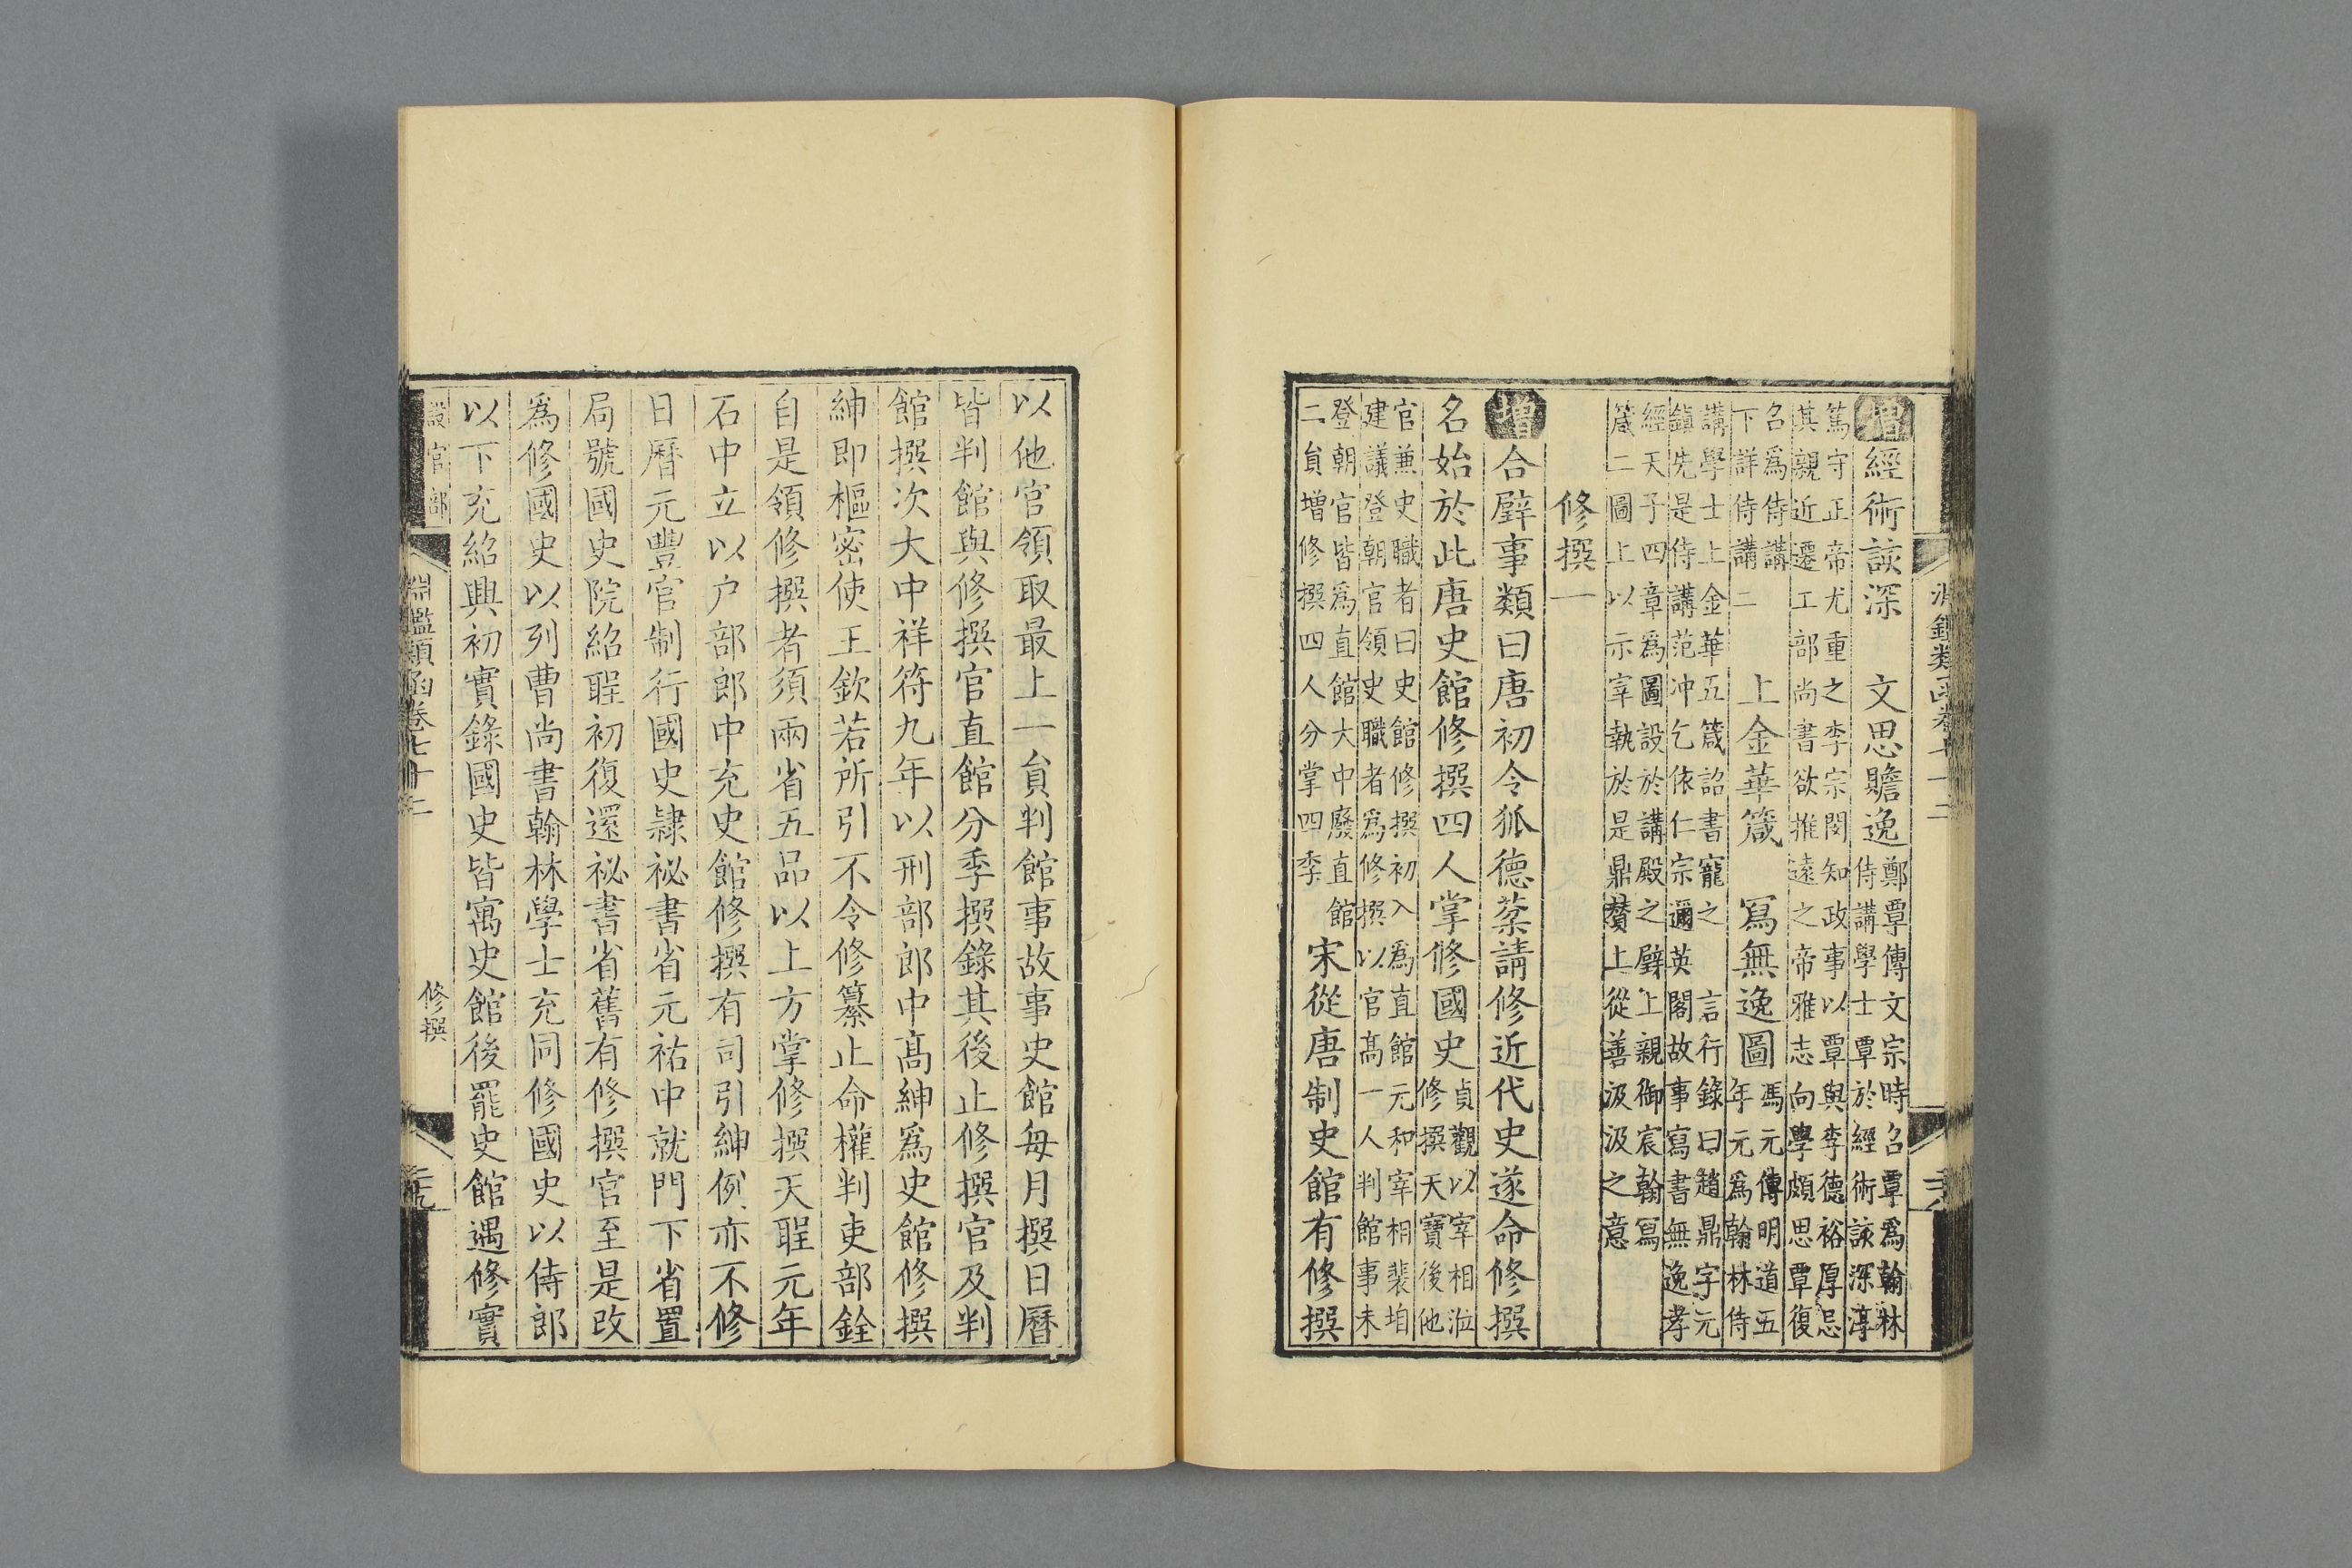 淵鑑類函卷七十二
增經術該深　文思贍逸鄭覃傳文宗時召覃爲翰林
侍講學士覃於經術該深淳
篤守正帝尤重之李宗閔知政事以覃與李德裕厚忌
其親近遷工部尚書欲推遠之帝雅志向學頗思覃復
召爲侍講
下詳侍講二　上金華箴　寫無逸圖馮元傳明道五
年元爲翰林侍
講學士上金華五箴詔書寵之　言行錄曰趙鼎字元
鎮先是侍講范冲乞依仁宗邇英閣故事寫書無逸孝
經天子四章爲圖設於講殿之壁上親御宸翰寫
箴二圖上以示宰執於是鼎贊上從善汲汲之意
修撰一
增合璧事類曰唐初令狐德棻請修近代史遂命修撰
名始於此唐史館修撰四人掌修國史貞觀以宰相涖
修撰天寶後他
官兼史職者曰史館修撰初入爲直館元和宰相裴垍
建議登朝官領史職者爲修撰以官高一人判館事未
登朝官皆爲直館大中廢直館
二貟增修撰四人分掌四季宋從唐制史館有修撰
以他官領取最上一貟判館事故事史館每月撰日曆
皆判館與修撰官直館分季撰錄其後止修撰官及判
館撰次大中祥符九年以刑部郎中高紳爲史館修撰
紳即樞密使王欽若所引不令修纂止命權判吏部銓
自是領修撰者須兩省五品以上方掌修撰天聖元年
石中立以户部郎中充史館修撰有司引紳例亦不修
日曆元豐官制行國史隷祕書省元祐中就門下省置
局號國史院紹聖初復還祕書省舊有修撰官至是改
爲修國史以列曹尚書翰林學士充同修國史以侍郎
以下充紹興初實錄國史皆寓史館後罷史館遇修實
設官部
淵鑑類函卷七十二
修撰
二十九